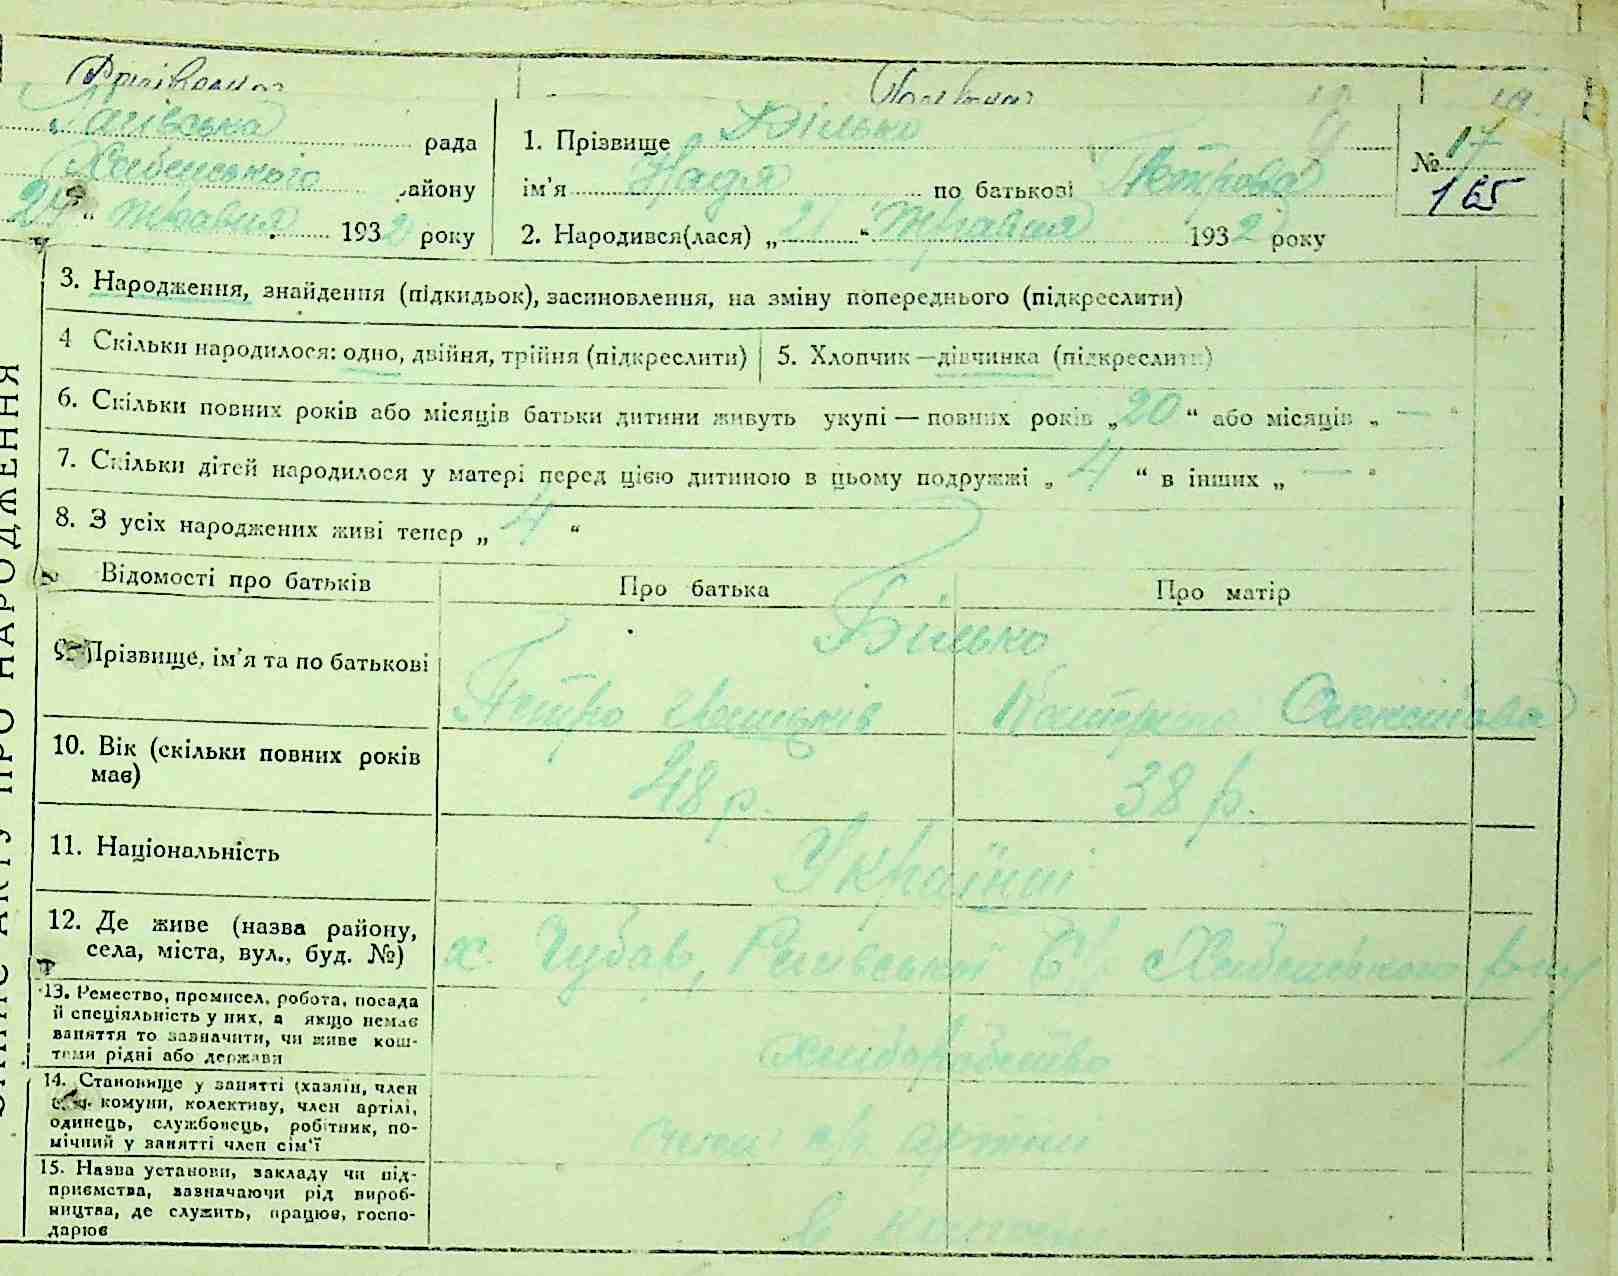 рада
Хабенського району
24 " травня 1932 року
1. Прізвище Білько
ім'я Надя по батькові Петрова
2. Народився(лася) „ 21 “ травня 1932 року
№ 17
165
ЗАПИС АКТУ ПРО НАРОДЖЕННЯ
3. Народження, знайдення (підкидьок), засиновлення, на зміну попереднього (підкреслити)
4 Скільки народилося: одно, двійня, трійня (підкреслити)
5. Хлопчик — дівчинка (підкреслити)
6. Скільки повних років або місяців батьки дитини живуть укупі — повних років „ 20 “ або місяців „ — “
7. Скільки дітей народилося у матері перед цією дитиною в цьому подружжі „ 4 “ в інших „ — “
8. З усіх народжених живі тепер „ 4 “
Відомості про батьків
Про батька
Про матір
9. Прізвище, ім'я та по батькові
Білько
Петро
10. Вік (скільки повних років
має)
48 р.
38 р.
11. Національність
Українці
12. Де живе (назва району,
села, міста, вул., буд. №)
х. Чубар, Хабенського
13. Ремество, промисел, робота, посада
й спеціяльність у них, а якщо немає
заняття то зазначити, чи живе кош-
тами рідні або держави
хліборобство
14. Становище у занятті (хазяїн, член
комуни, колективу, член артілі,
одинець, службовець, робітник, по-
мічний у занятті член сім'ї
член с/г артілі
15. Назва установи, закладу чи під-
приємства, зазначаючи рід вироб-
ництва, де служить, працює, госпо-
дарює